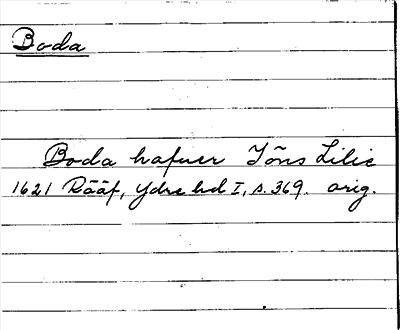 Boda
Boda hafuer Jõns Lilie
1621 Rääf, Ydre hd I, s. 369. orig.